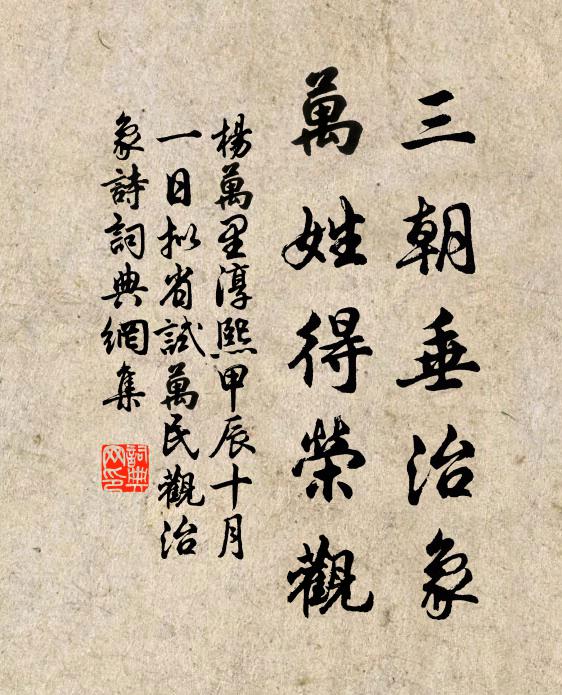 三朝垂治象
萬姓得榮觀
楊萬里淳熙甲辰十月
一日拟省試萬民觀治
象詩詞典網集
詞典
网印